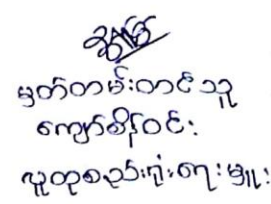 မှတ်တမ်းတင်သူ
ကျော်စိန်ဝင်း
လူထုစည်းရုံးရေးမှူး